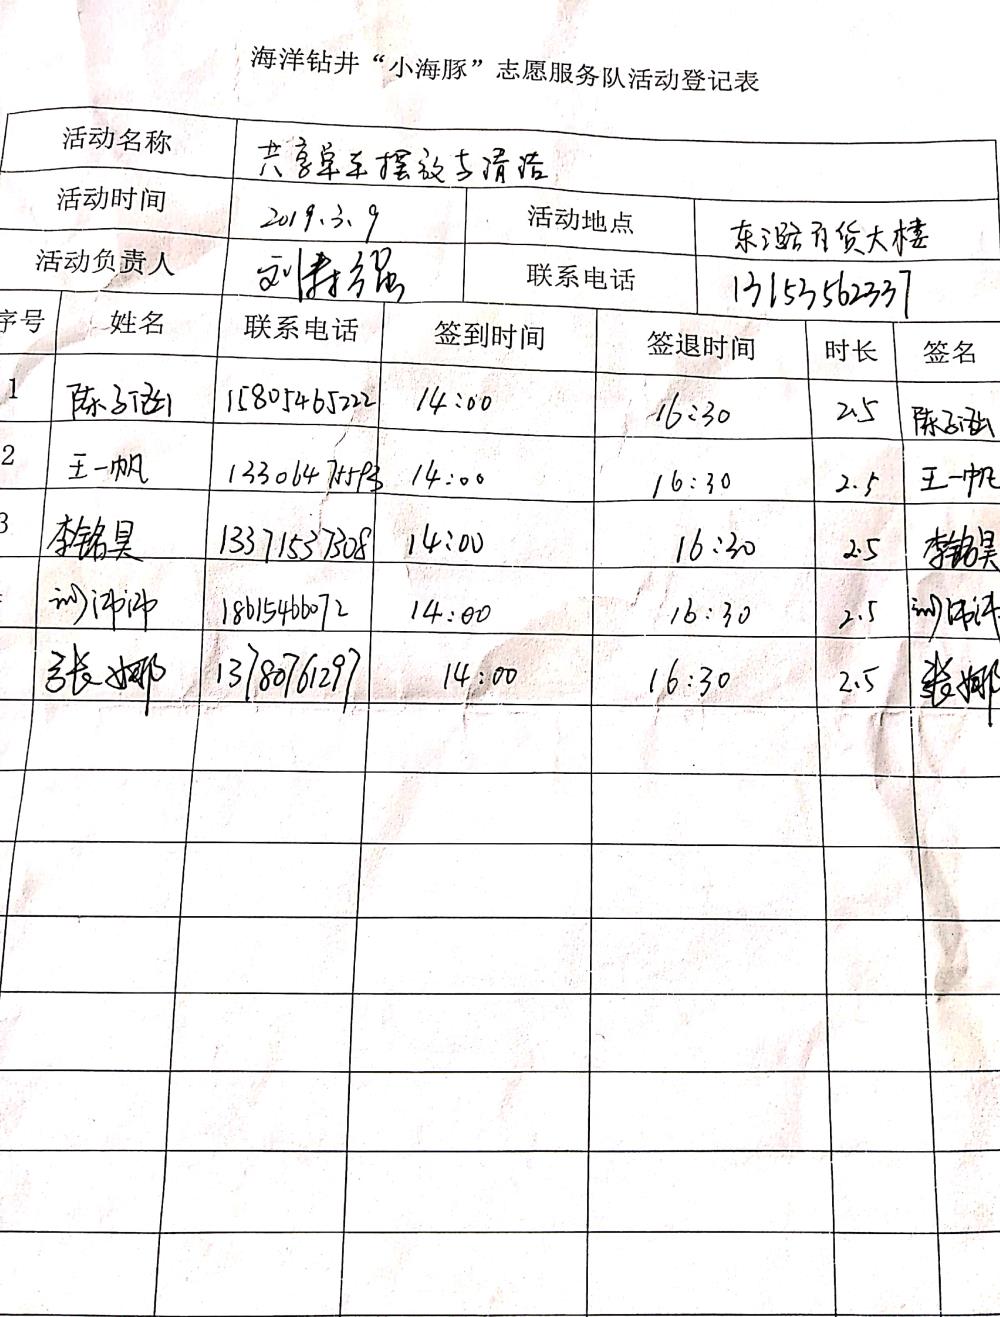 海洋钻井“小海豚”志愿服务队活动登记表
活动名称 共享单车摆放与清洁
活动时间 2019.3.9 活动地点 东二路百货大楼
活动负责人 刘寿强 联系电话 13153562337
序号 姓名 联系电话 签到时间 签退时间 时长 签名
1 陈子涵 15805465222 14:00 16:30 2.5 陈子涵
2 王一帆 13306475593 14:00 16:30 2.5 王一帆
3 李铭昊 13371537308 14:00 16:30 2.5 李铭昊
刘沛沛 18615466072 14:00 16:30 2.5 刘沛沛
张娜 13780761297 14:00 16:30 2.5 张娜